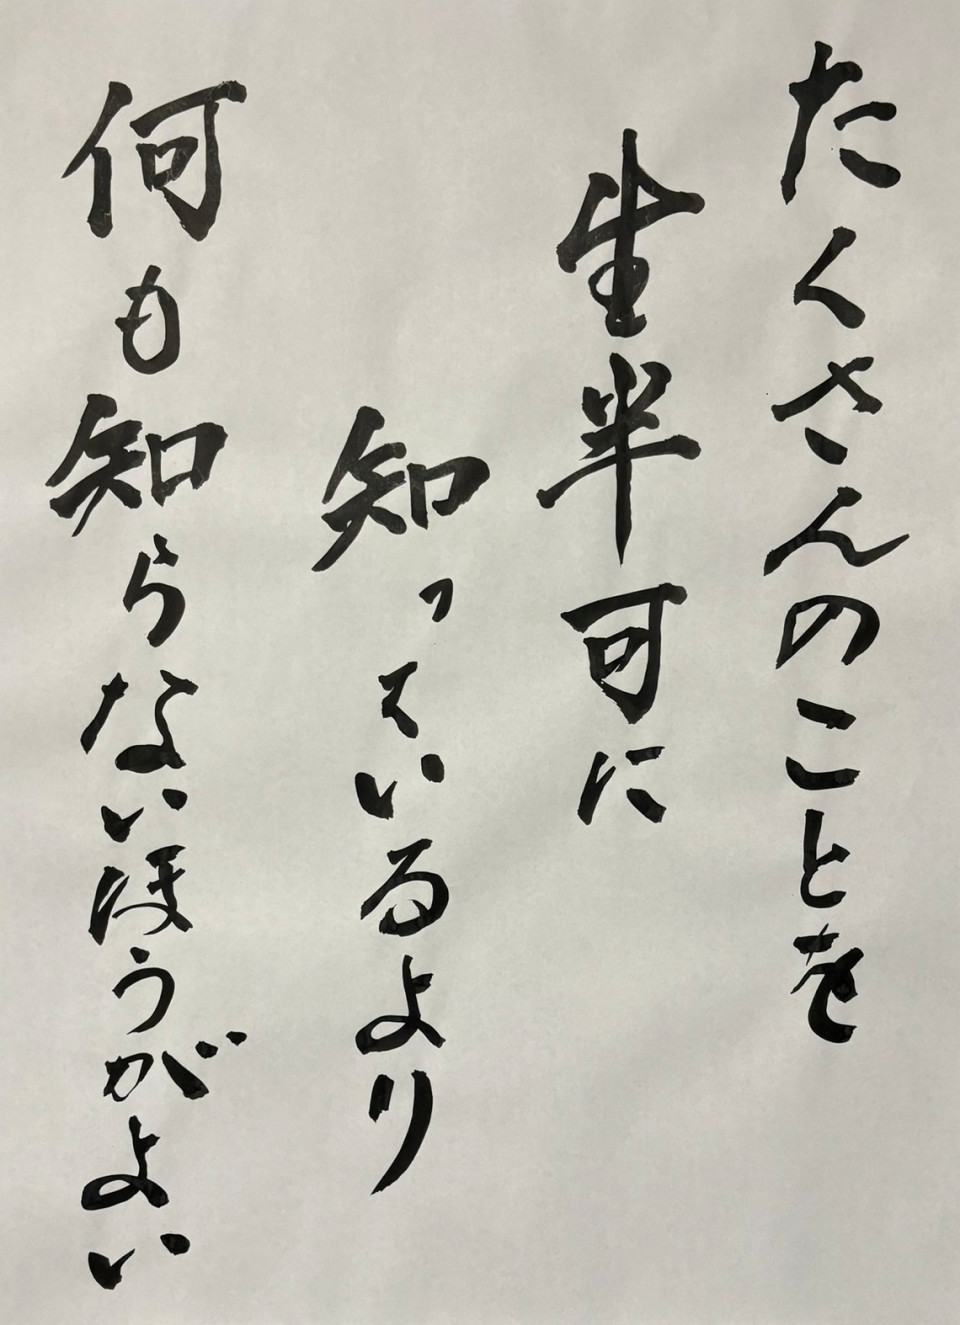 たくさんのことを
生半可に
知っているより
何も知らないほうがよい